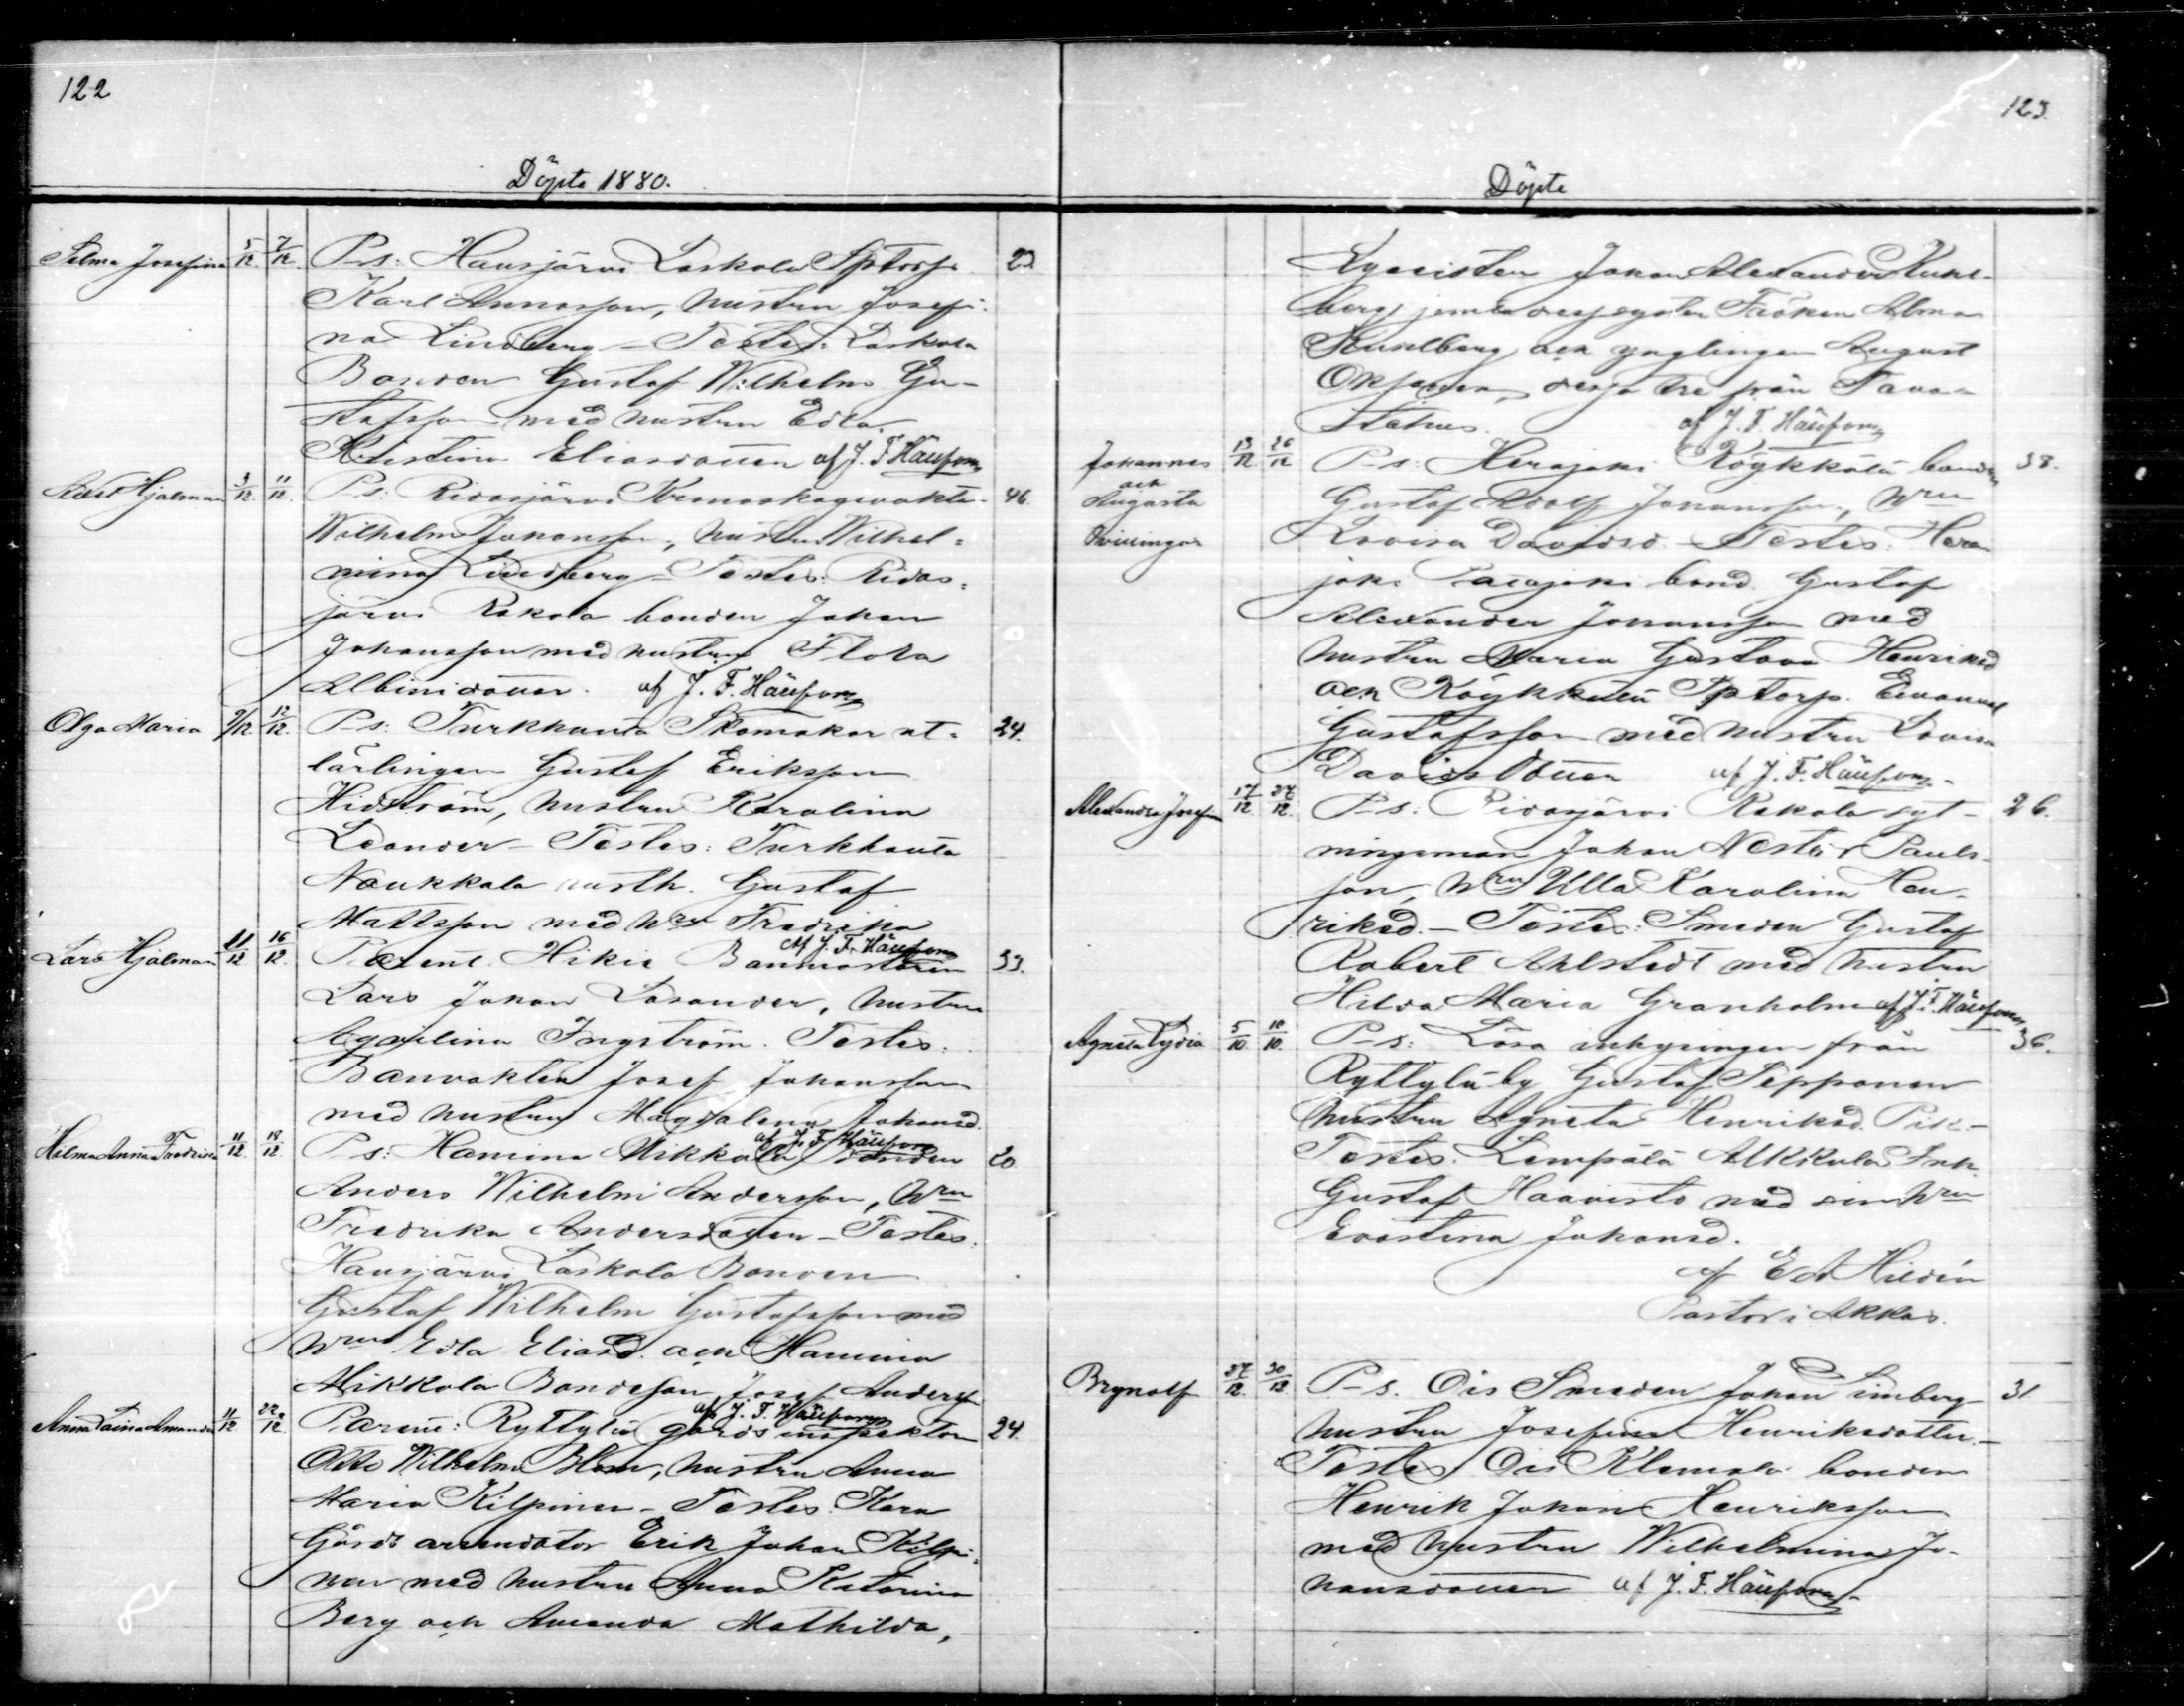 122
Döpte 1880.
Selma Josefina 5/12. 7/12. P-s: Hausjärvi Laskala Sptorp.
Karl Annasson, hustru Josefi-
na Lindberg - Testes: Laskala
Bonden Gustaf Wilhelm Gu-
stafsson med hustru Edla
Kristina Eliasdotter af J. F. 
Hjalmar 3/12. 11/12. P-s: Ridasjärvi Kronoskogsvakta- 46.
Wilhelm Johansson, hustru Wilhel-
mina Lindberg - Testes: Ridas-
järvi Rakola bonden Johan
Johansson med hustru Flora
Albinidotter. af J. F.
Olga Maria 9/12. 12/12. P-s: Turkhauta Skomakar ut- 24.
lärlingen Gustaf Eriksson
Hidström, hustru Karolina
Leander - Testes: Turkhauta
Naukkala rusth. Gustaf
Mattsson med hru Fredrika
af J. F.
Lars Hjalmar 11/12 16/12. Parent. Hikiä Banmästaren 33.
Lars Johan Lasander, hustru
Ingström. Testes:
Banvakten Josef Johansson
med hustru Magdalena Johansd.
af J. F.
Hilma Anna Fredrika 11/12. 18/12. P-s: Hamina Mikkola bonden 20
Anders Wilhelm Andersson, hru
Fredrika Andersdotter - Testes.
Hausjärvi Laskala Bonden
Gustaf Wilhelm Gustafsson med
hru Edla Eliasd. och Hamina
Mikkola Bondeson Josef Anderss
af J. F.
Anna Taina Amanda 11/12. 22/12 Parent: Ryttylä gårds inspektor 24.
Otto Wilhelm Blom, hustru Anna
Maria Kilpinen - Testes: Kara
Gårds arrendator Erik Johan Kilpi-
nen med hustru Anna Katarina
Berg och Amanda Mathilda,
123
Döpte
Lyceisten Johan Alexander Kuhl-
berg jemte dess syster Fröken Alma
Kuhlberg och ynglingen August
Oksanen, dessa tre från Tava-
stehus. af J. F.
Johannes 13/12 26/12 P-s: Herajoki Röykkälä bonden 38.
och
Augusta Gustaf Adolf Johansson, hru
Tvillingar Lovisa Davidsd. - Testes: Hera
joki Paiajoki bond. Gustaf
Alexander Johansson med
hustru Maria Gustava Henriksd
och Röykkälä Sptorp. Emanuel
Gustafsson med hustru Lovisa
Davidsdotter af J. F.
Alexandra Josefina 17/12. 27/12. P-s: Ridasjärvi Rakola syt- 26.
ningsman Johan Nestor Pauls-
son, hru Ulla Karolina Hen-
riksd. - Testes: Smeden Gustaf
Robert Ahlstedt med hustru
Hilda Maria Granholm af J. F.
Agneta Lydia 5/10. 10/10. P-s: Lösa inhysingen från 36.
Ryttylä by Gustaf Tepponen
hustru Agneta Henriksd.
Testes: Lempälä Alkkula Inh.
Gustaf Haavisto med sin hru
Evastina Johansd.
af Ed Hildén
Pastor i Akkas.
Brynolf 27/12. 30/12 P-s. Ois Smeden Johan Limberg 31
hustru Josefina Henriksdotter -
Testes Ois Klemola bonden
Henrik Johan Henriksson
med hustru Wilhelmina Jo-
hansdotter af J. F.